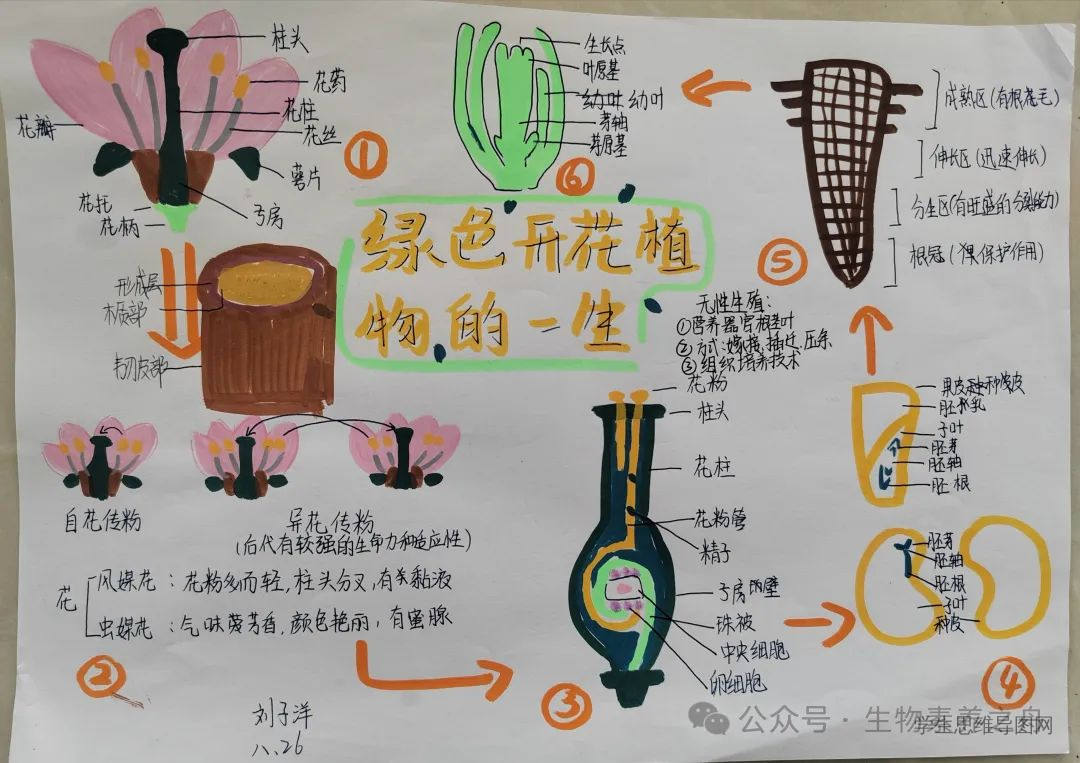 柱头
花药
花柱
花丝
花瓣
萼片
花托
花柄
子房
①
形成层
木质部
韧皮部
生长点
叶原基
幼叶 幼叶
芽轴
芽原基
⑥
绿色开花植
物的一生
成熟区(有根毛)
伸长区(迅速伸长)
分生区(有旺盛的分裂能力)
根冠(保护作用)
⑤
无性生殖:
①营养器官根茎叶
②方式:嫁接、扦插、压条
③组织培养技术
自花传粉
异花传粉
(后代有较强的生命力和适应性)
花
风媒花:花粉多而轻,柱头分叉,有关黏液
虫媒花:气味芳香,颜色艳丽,有蜜腺
②
花粉
柱头
花柱
花粉管
精子
子房壁
珠被
中央细胞
卵细胞
③
果皮和种皮
胚乳
子叶
胚芽
胚轴
胚根
胚芽
胚轴
胚根
子叶
种皮
④
刘子洋
八、26
公众号·生物素养之舟
学生思维导图网